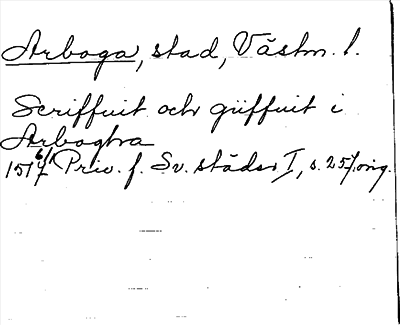 Arboga, stad, Västm. l.
Scriffuit och giiffuit i
Arboghra
1517 6/1 Priv. f. Sv. städer I, s. 257, orig.